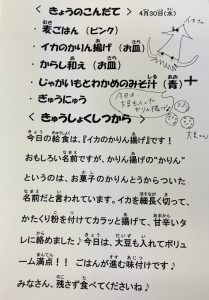 < きょうのこんだて > 4月30日(水)
・麦ごはん(ピンク)
・イカのかりん揚げ(お皿)
・からし和え(お皿)
・じゃがいもとわかめのみそ汁(青)
・ぎゅうにゅう
イカさん
今日は
大豆も入った
< きゅうしょくしつから >
今日の給食は、『イカのかりん揚げ』です!
おもしろい名前ですが、かりん揚げの“かりん”
というのは、お菓子のかりんとうからついた
名前だと言われています。イカを細長く切って、
かたくり粉を付けてカラッと揚げて、甘辛いタ
レに絡めました♪今日は、大豆も入れてボリュ
ーム満点!! ごはんが進む味付けです♪
みなさん、残さず食べてくださいね♪